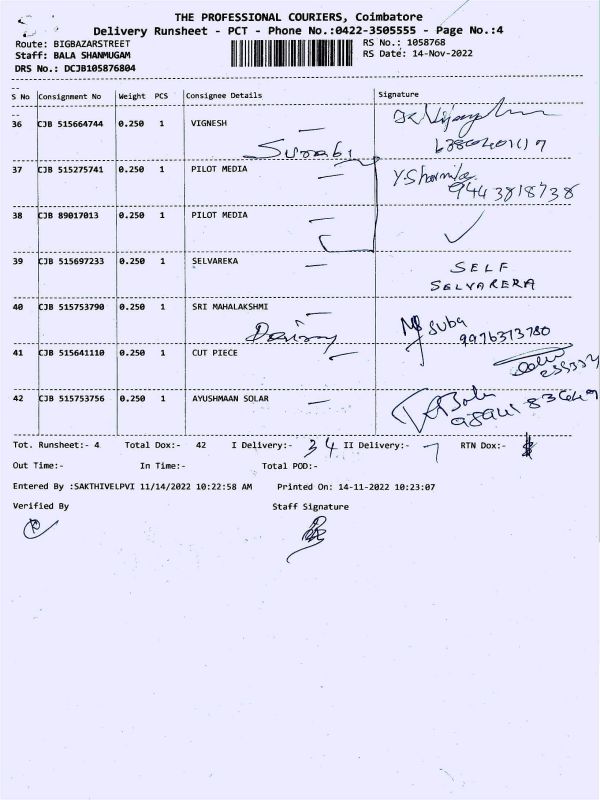 THE PROFESSIONAL COURIERS, Coimbatore
Delivery Runsheet - PCT - Phone No.:0422-3505555 - Page No.:4
Route: BIGBAZARSTREET RS No.: 1058768
Staff: BALA SHANMUGAM RS Date: 14-Nov-2022
DRS No.: DCJB105876804
S No Consignment No Weight PCS Consignee Details Signature
36 CJB 515664744 0.250 1 VIGNESH
37 CJB 515275741 0.250 1 PILOT MEDIA Y.Sharmila
9443818738
38 CJB 89017013 0.250 1 PILOT MEDIA
39 CJB 515697233 0.250 1 SELVAREKA SELF
SELVARERA
40 CJB 515753790 0.250 1 SRI MAHALAKSHMI Suba
9976373780
41 CJB 515641110 0.250 1 CUT PIECE
42 CJB 515753756 0.250 1 AYUSHMAAN SOLAR
Tot. Runsheet:- 4 Total Dox:- 42 I Delivery:- 34 II Delivery:- 7 RTN Dox:-
Out Time:- In Time:- Total POD:-
Entered By :SAKTHIVELPVI 11/14/2022 10:22:58 AM Printed On: 14-11-2022 10:23:07
Verified By Staff Signature